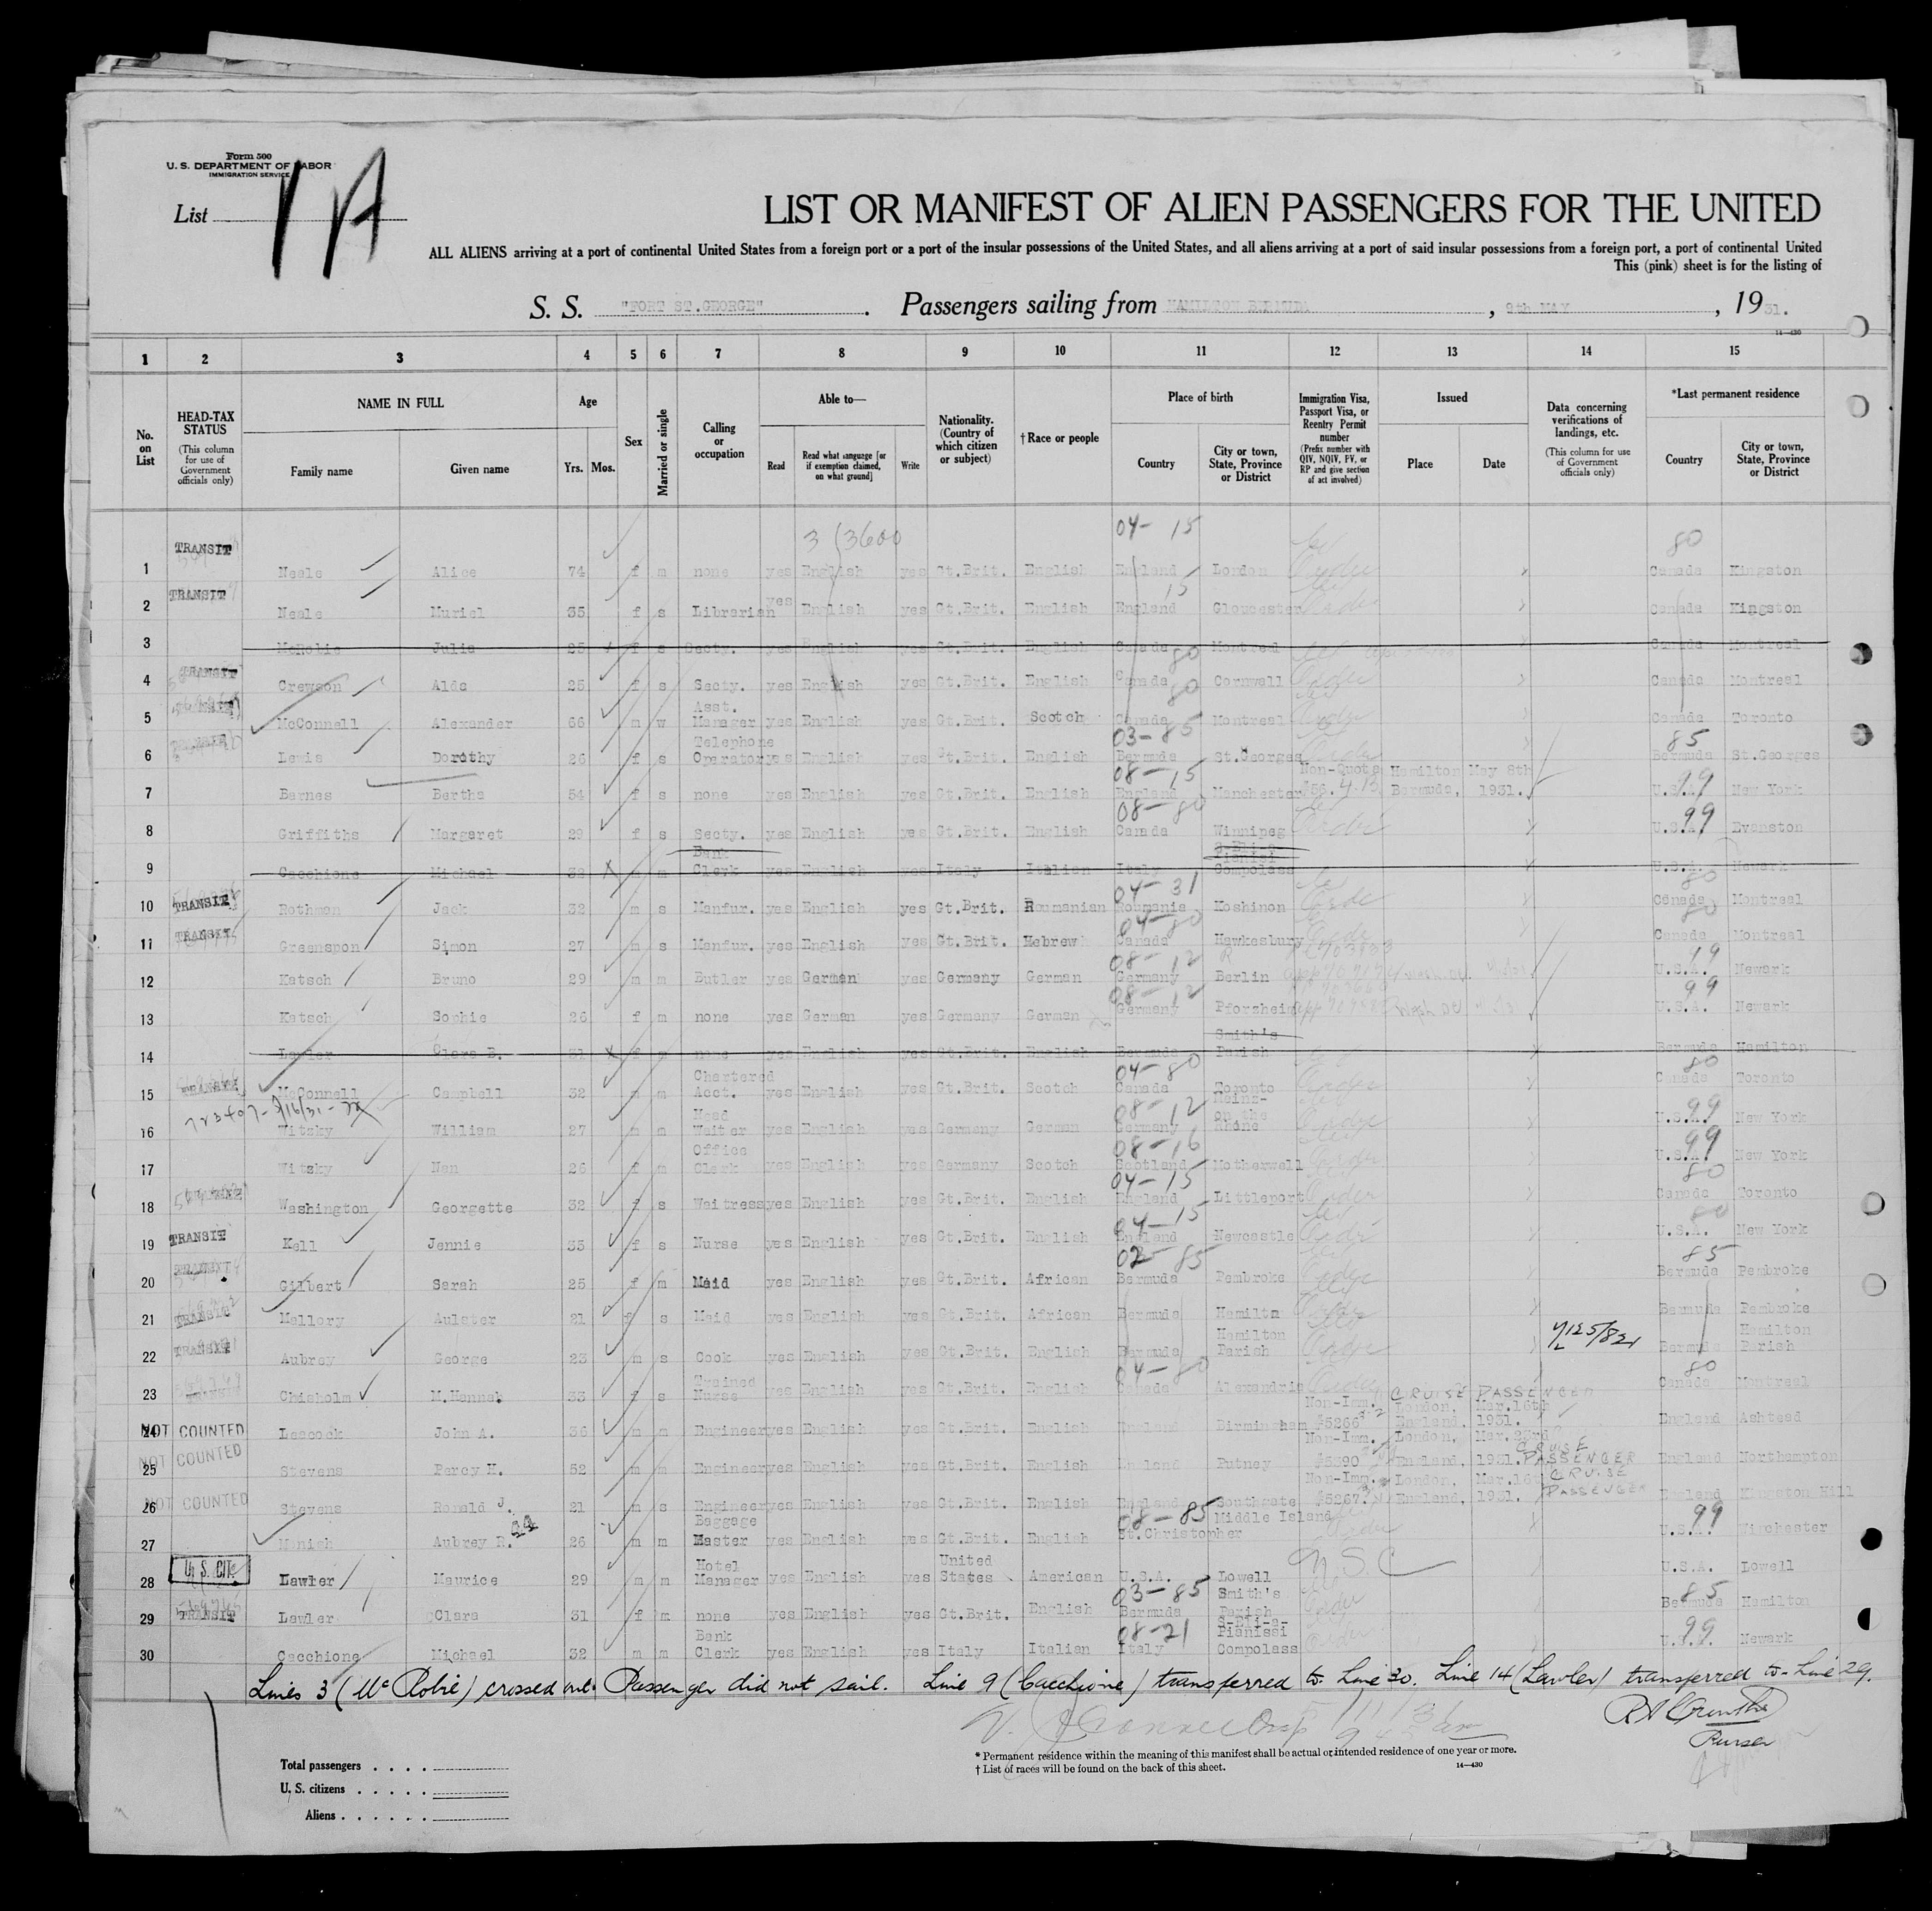 Form 500
U. S. DEPARTMENT OF LABOR
IMMIGRATION SERVICE
List 1A
LIST OR MANIFEST OF ALIEN PASSENGERS FOR THE UNITED
ALL ALIENS arriving at a port of continental United States from a foreign port or a port of the insular possessions of the United States, and all aliens arriving at a port of said insular possessions from a foreign port, a port of continental United
This (pink) sheet is for the listing of
S. S. "FORT ST.GEORGE". Passengers sailing from HAMILTON BERMUDA, 9th MAY, 1931.
14—430
1 2 3 4 5 6 7 8 9 10 11 12 13 14 15
No. on List
HEAD-TAX STATUS (This column for use of Government officials only)
NAME IN FULL Family name Given name
Age Yrs. Mos.
Sex
Married or single
Calling or occupation
Able to— Read Read what language [or if exemption claimed, on what ground] Write
Nationality. (Country of which citizen or subject)
†Race or people
Place of birth Country City or town, State, Province or District
Immigration Visa, Passport Visa, or Reentry Permit number (Prefix number with QIV, NQIV, PV, or RP and give section of act involved)
Issued Place Date
Data concerning verifications of landings, etc. (This column for use of Government officials only)
*Last permanent residence Country City or town, State, Province or District
3/3600 04- 15 80
1 TRANSIT Neale Alice 74 f m none yes English yes Gt.Brit. English England London Canada Kingston
2 TRANSIT Neale Muriel 35 f s Librarian yes English yes Gt.Brit. English England 15 Gloucester Canada Kingston
3 McRobie Julia 25 f s Secty. yes English yes Gt.Brit. English Canada Montreal Canada Montreal
4 TRANSIT Crewson Alda 25 f s Secty. yes English yes Gt.Brit. English Canada 80 Cornwall Canada Montreal
5 McConnell Alexander 66 m w Asst. Manager yes English yes Gt.Brit. Scotch Canada 80 Montreal Canada Toronto
6 Lewis Dorothy 26 f s Telephone Operator yes English yes Gt.Brit. English 03-85 Bermuda St.Georges 85 Bermuda St.Georges
7 Barnes Bertha 54 f s none yes English yes Gt.Brit. English 08-15 England Manchester Non-Quota #56. 4.B. Hamilton Bermuda, May 8th 1931. 99 U.S.A. New York
8 Griffiths Margaret 29 f s Secty. yes English yes Gt.Brit. English 08-80 Canada Winnipeg 99 U.S.A. Evanston
9 Cacchione Michael 32 m m Bank Clerk yes English yes Italy Italian Italy Compolass U.S.A. Newark
10 TRANSIT Rothman Jack 32 m s Manfur. yes English yes Gt.Brit. Roumanian 04-31 Roumania Koshinon 80 Canada Montreal
11 TRANSIT Greenspon Simon 27 m s Manfur. yes English yes Gt.Brit. Hebrew 04-80 Canada Hawkesbury 80 Canada Montreal
12 Katsch Bruno 29 m m Butler yes German yes Germany German 08-12 Germany Berlin 99 U.S.A. Newark
13 Katsch Sophie 26 f m none yes German yes Germany German 08-12 Germany Pforzheim 99 U.S.A. Newark
14 Lawler Clara B. 31 f m none yes English yes Gt.Brit. English Bermuda Smith's Parish Bermuda Hamilton
15 McConnell Campbell 32 m m Chartered Acct. yes English yes Gt.Brit. Scotch 04-80 Canada Toronto 80 Canada Toronto
16 Witzky William 27 m m Head Waiter yes English yes Germany German 08-12 Germany Mainz-on the Rhone 99 U.S.A. New York
17 Witzky Nan 26 f m Office Clerk yes English yes Germany Scotch 08-16 Scotland Motherwell 99 U.S.A. New York
18 Washington Georgette 32 f s Waitress yes English yes Gt.Brit. English 04-15 England Littleport 80 Canada Toronto
19 TRANSIT Kell Jennie 35 f s Nurse yes English yes Gt.Brit. English 04-15 England Newcastle 80 U.S.A. New York
20 Gilbert Sarah 25 f m Maid yes English yes Gt.Brit. African 02-85 Bermuda Pembroke 85 Bermuda Pembroke
21 TRANSIT Mallory Aulster 21 f s Maid yes English yes Gt.Brit. African Bermuda Hamiltn Bermuda Pembroke
22 TRANSIT Aubrey George 23 m s Cook yes English yes Gt.Brit. English Bermuda Hamilton Parish Bermuda Hamilton Parish
23 Chisholm M.Hannah 33 f s Trained Nurse yes English yes Gt.Brit. English 04-80 Canada Alexandria 80 Canada Montreal
24 NOT COUNTED Leacock John A. 36 m m Engineer yes English yes Gt.Brit. English England Birmingham Non-Imm. #5266 London, England, Mar.16th 1931. CRUISE PASSENGER England Ashtead
25 NOT COUNTED Stevens Percy H. 52 m m Engineer yes English yes Gt.Brit. English England Putney Non-Imm. #5390 London, England, Mar.23rd 1931. CRUISE PASSENGER England Northampton
26 NOT COUNTED Stevens Ronald J. 21 m s Engineer yes English yes Gt.Brit. English England Southgate Non-Imm. #5267. London, England, Mar.16th 1931. CRUISE PASSENGER England Kingston Hill
27 Manish Aubrey R. 26 m m Baggage Master yes English yes Gt.Brit. English 08-85 St.Christopher Middle Island 99 U.S.A. Winchester
28 U. S. CIT. Lawler Maurice 29 m m Hotel Manager yes English yes United States American U.S.A. Lowell U S C U.S.A. Lowell
29 TRANSIT Lawler Clara 31 f m none yes English yes Gt.Brit. English 03-85 Bermuda Smith's Parish 85 Bermuda Hamilton
30 Cacchione Michael 32 m m Bank Clerk yes English yes Italy Italian 08-21 Italy S-Elia-Pianissi Compolass 99 U.S.A. Newark
Lines 3 (McRobie) crossed out. Passenger did not sail. Line 9 (Cacchione) transferred to Line 30. Line 14 (Lawler) transferred to Line 29.
Purser
* Permanent residence within the meaning of this manifest shall be actual or intended residence of one year or more.
† List of races will be found on the back of this sheet.
14—430
Total passengers . . . .
U. S. citizens . . . . .
Aliens . . . . . .